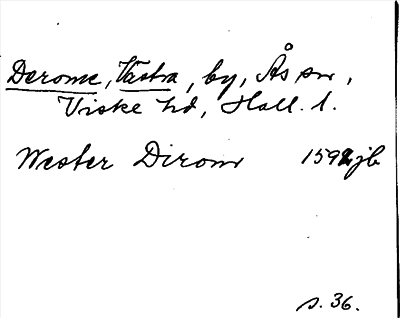 Derome, Västra, by, Ås sn,
Viske hd, Hall. l.
Wester Dirom 1592 jb
s. 36.